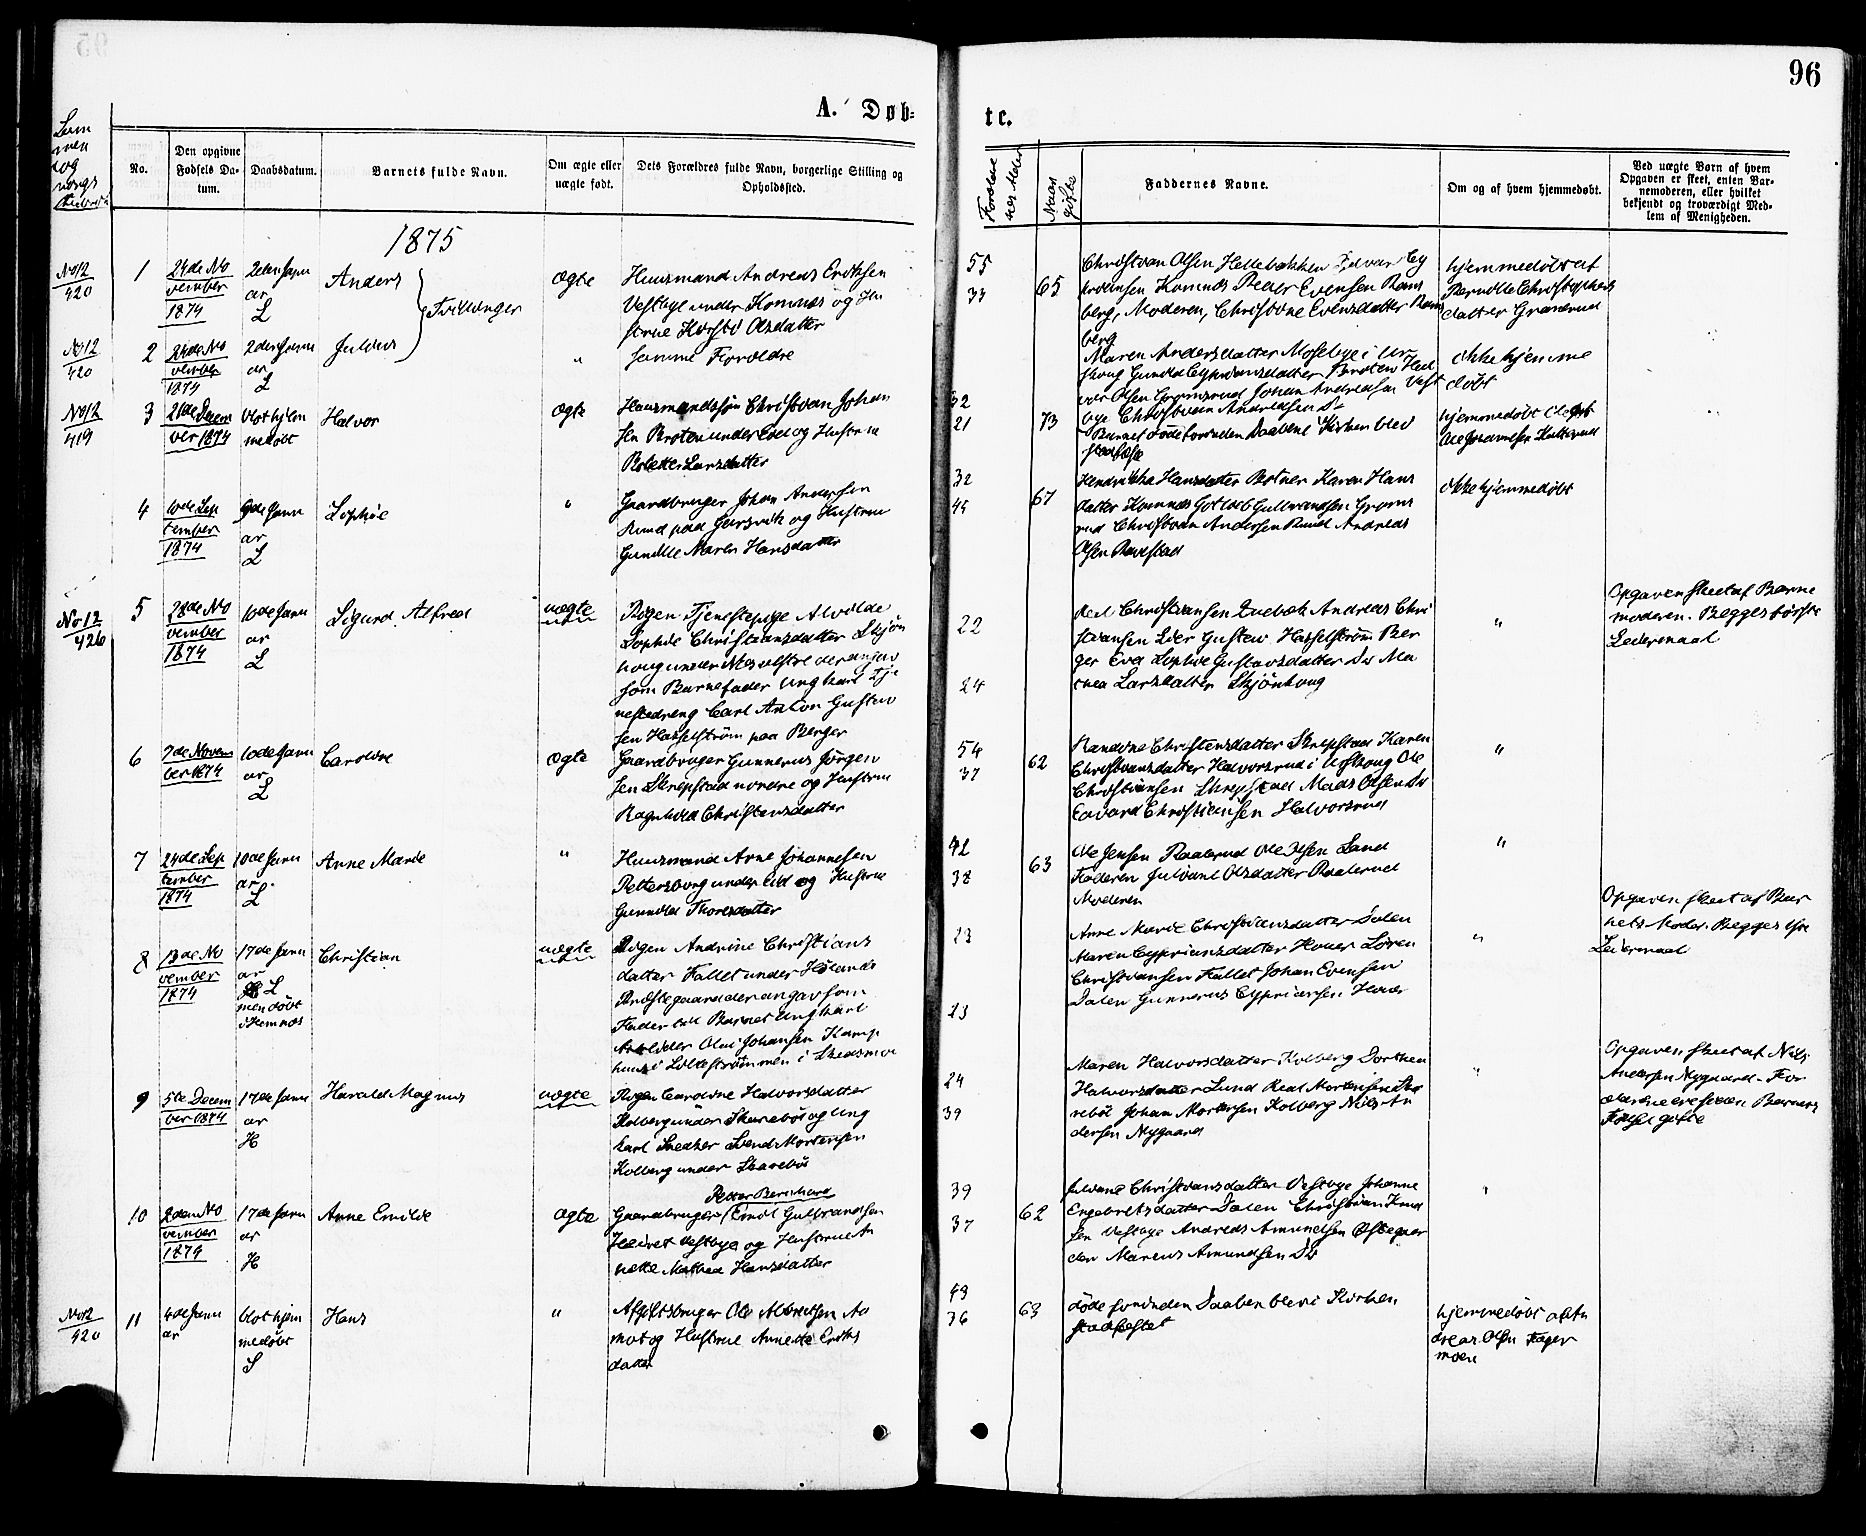 96
A. Døb=
te.
No.
Den opgivne
Fødsels Da=
tum.
Daabsdatum.
Barnets fulde Navn.
Om ægte eller
uægte født.
Dets Forældres fulde Navn, borgerlige Stilling og
Opholdssted.
Faddernes Navne.
Om og af hvem hjemmedøbt.
Ved uægte Børn af hvem
Opgaven er skeet, enten Bar=
nemoderen, eller hvilket
bekjendt og troværdigt Med=
lem af Menigheden.
1875
No 12
420
1
24de No
vember
1874
2den Janu
ar
L
Anders
Tvillinger
Ægte
Huusmand Andreas Eriksen
Vestbye under Komnæs og Hu
strue Kjersti Olsdatter
55
33
65
Christian Olsen Hellebækken Edvar Cy
priansen Komnæs Peder Evensen Rams
berg, Moderen, Christine Evensdatter Rams
berg
hjemmedøbt af
Pernille Christophers
datter Grønerud
No 12
420
2
24de No
vember
1874
2den Janu
ar
L
Julius
"
samme Forældre
Maren Andersdatter Mosebye i Ur
skoug Gunild Cypriansdatter Broten Hal
vor Olsen Grønsrud Johan Andreasen Vest
bye Christian Andreasen Ds
ikke hjemme
døbt
No 12
419
3
21de Decem
ber 1874
blot hjem
medøbt
Halvor
Ægte
Huusmandssøn Christian Johan
sen Broten under Eid og Hustrue
Bolette Larsdatter
32
21
73
Barnet døde forinden Daaben i Kirken blev
stadfæstet
hjemmedøbt
4
10de Sep
tember
1874
9de Janu
ar
L
Sophie
"
Gaardbruger Johan Andersen
Ruud paa Gersvik og Hustrue
Gunille Maria Hansdatter
32
45
67
Hendrikke Hansdatter Botner Karen Hans
datter Komnæs Gotlieb Gulbrandsen Grøns
rud Christian Andersen Ruud Andreas
Olsen Bævestad
ikke hjemmedøbt
No 12
426
5
28de No
vember
1874
10de Janu
ar
L
Sigurd Alfred
uægte
Pigen Tjenestepige Alvilde
Sophie Christiansdatter Skjøn
houg under Næs vestre der angav
som Barnefader Ungkarl Tje
nestedreng Carl Anton Gustav
sen Hasselstrøm paa Berger
22
24
Christiansen Andreas Chri
stiansen Lier Gustav Hasselstrøm Ber
ger Eva Sophie Gustavsdatter Ds Ma
thea Larsdatter Skjønhoug
"
Opgaven skeet af Barne
moderen. Begges første
Leiermaal
6
7de Novem
ber 1874
10de Janu
ar
L
Caroline
Ægte
Gaardbruger Gunnerius Jørgen
sen Skrepstad nordre og Hustrue
Ragnhild Christensdatter
54
37
62
Randine Christensdatter Skrepstad Karen
Christiansdatter Halvorsrud i Urskoug Ole
Christiansen Skrepstad Mads Olsen Ds
Edvard Christiansen Halvorsrud
"
7
24de Sep
tember
1874
10de Janu
ar
L
Anne Marie
"
Huusmand Arne Johannesen
Pettersborg under Eid og Hustrue
Gunnild Thorsdatter
42
38
63
Ole Jensen Raalerud Ole Olsen Lund
Faderen Juliane Olsdatter Raalerud
Moderen
"
8
13de No
vember
1874
17de Janu
ar
L
men døbt
i Hemnæs
Christian
uægte
Pigen Andrine Christians
datter Fallet under Hølands
Præstegaard der angav som
Fader til Barnet Ungkarl
Arbeider Olai Johansen Kamp
huus i Lillestrømmen i Skedsmoe
23
23
Anne Marie Christiansdatter Dalen
Maren Cypriansdatter Hover Søren
Christiansen Fallet Johan Evensen
Dalen Gunnerius Cypriansen Hover
"
Opgaven skeet af Bar
nets Moder. Begges 1ste
Leiermaal
9
5te Decem
ber 1874
17de Janu
ar
H
Harald Magnus
uægte
Pigen Caroline Halvorsdatter
Kolberg under Skarebøs og Ung
karl Snedker Svend Mortensen
Kolberg under Skarebøs
24
39
Maren Halvorsdatter Kolberg Dorthea
Halvorsdatter Lund Mortensen Ska
rebøl Johan Mortensen Kolberg Nils An
dersen Nygaard
"
Opgaven skeet af Nils
Andersen Nygaard. For
ældrene ere siden Barnets
Fødsel gifte
10
2den No
vember
1874
17de Janu
ar
H
Anne Emilie
Ægte
Petter Bernhard
Gaardbruger Emil Gulbrandsen
Vestbye og Hustrue An
nette Mathea Hansdatter
39
37
62
Juliane Christiansdatter Vestbye Johanne
Engebretsdatter Dalen Christian Knud
sen Vestbye Andreas Amundsen Østegaar
den Marius Amundsen Ds
"
No 12
420
11
4de Janu
ar
blot hjem
medøbt
S
Hans
"
Ole Albretsen Aa
mot og Hustrue Annette Eriks
datter
43
36
63
døde forinden Daaben blev i Kirken
stadfæstet
hjemmedøbt af An
dreas Olsen Fager
moen